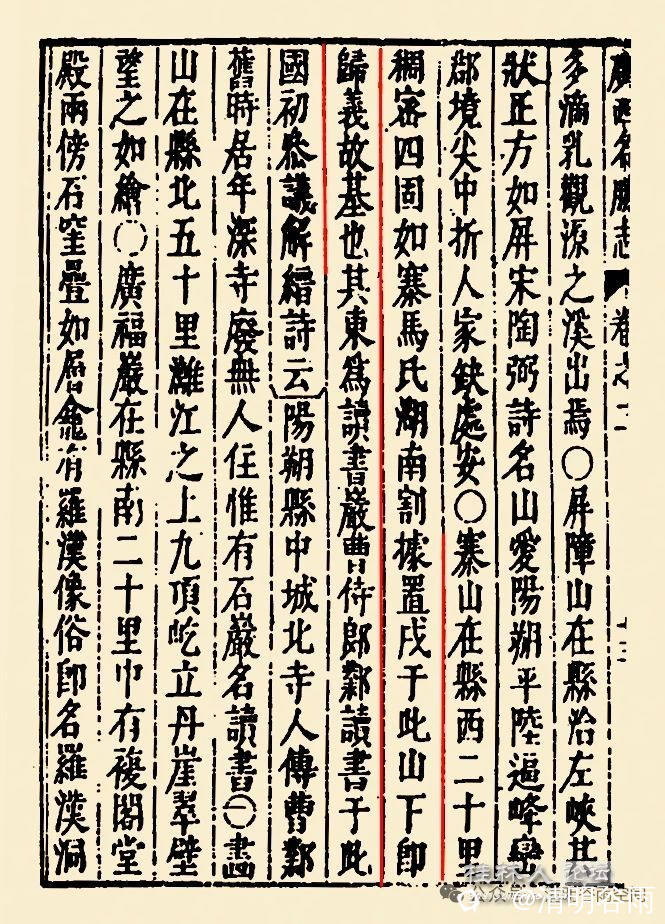 廣西名勝志 卷之二
多滴乳觀源之溪出焉○屏障山在縣治左峽其
狀正方如屏宋陶弼詩名山愛陽朔平陸逼峰巒
郡境尖中折人家缺處安○寨山在縣西二十里
稠密四固如寨馬氏湖南割據置戍于此山下卽
歸義故基也其東為讀書巖曹侍郎鄴讀書于此
國初參議解縉詩云陽朔縣中城北寺人傳曹鄴
舊時居年深寺廢無人住惟有石巖名讀書○畫
山在縣北五十里灕江之上九頂屹立丹崖翠壁
望之如繪○廣福巖在縣南二十里中有複閣堂
殿兩傍石室疊如層龕有羅漢像俗卽名羅漢洞
桂林人论坛
@清明谷雨